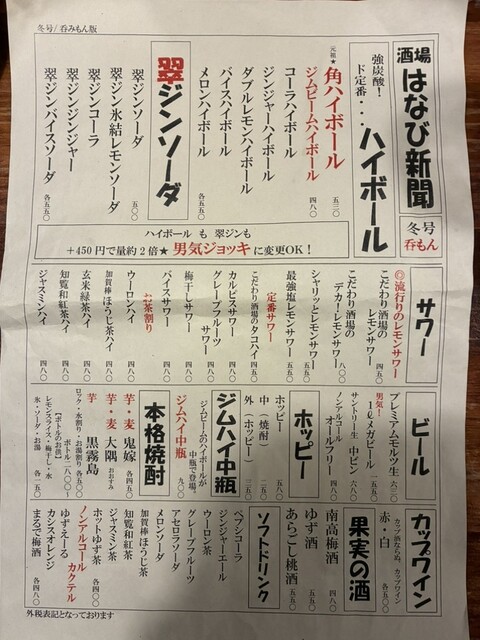 冬号/呑みもん版
酒場 はなび新聞
冬号
呑もん
ハイボール
強炭酸！
ド定番・・・
元祖★角ハイボール 五三〇
ジムビームハイボール 四八〇
コーラハイボール
ジンジャーハイボール
ダブルレモンハイボール
バイスハイボール
メロンハイボール
各五五〇
翠ジンソーダ
翠ジンソーダ 五〇〇
翠ジン氷結レモンソーダ
翠ジンコーラ
翠ジンジンジャー
翠ジンバイスソーダ
各五五〇
ハイボール も 翠ジンも
+450円で量約2倍★ 男気ジョッキ に変更OK！
サワー
◎流行りのレモンサワー
こだわり酒場の
レモンサワー 四五〇
こだわり酒場の
デカーレモンサワー 八〇〇
シャリッとレモンサワー
最強塩レモンサワー
定番サワー
こだわり酒場のタコハイ
カルピスサワー
グレープフルーツ
サワー
梅干しサワー
バイスサワー
お茶割り
ウーロンハイ
加賀棒ほうじ茶ハイ
玄米緑茶ハイ
知覧和紅茶ハイ
ジャスミンハイ
ビール
プレミアムモルツ生 六二〇
男気！
1ℓメガビール
サントリー生 中ビン 六八〇
ノンアルコール
オールフリー 四八〇
ホッピー
ホッピー 五八〇
中（焼酎）
外（ホッピー）
ジムハイ中瓶
ジムビームのハイボールが
中瓶で登場。
ジムハイ中瓶
本格焼酎
芋・麦 鬼嫁 各四五〇
芋・麦 大隅
芋 黒霧島
ロック・水割り・お湯割り 各五〇〇
【ボトルのお供】
レモンスライス・梅干し・水
氷・ソーダ・お湯 各一五〇
カップワイン
カップ酒ならぬ、カップワイン
赤・白 各五五〇
果実の酒
南高梅酒 四八〇
ゆず酒
あらごし桃酒
ソフトドリンク
ペプシコーラ
ジンジャーエール
ウーロン茶
グレープフルーツ
アセロラソーダ
メロンソーダ
加賀棒ほうじ茶
知覧和紅茶
ジャスミン茶
ホットゆず茶
ノンアルコール カクテル
ゆずえーる
カシスオレンジ
まるで梅酒 各四八〇
外税表記となっております